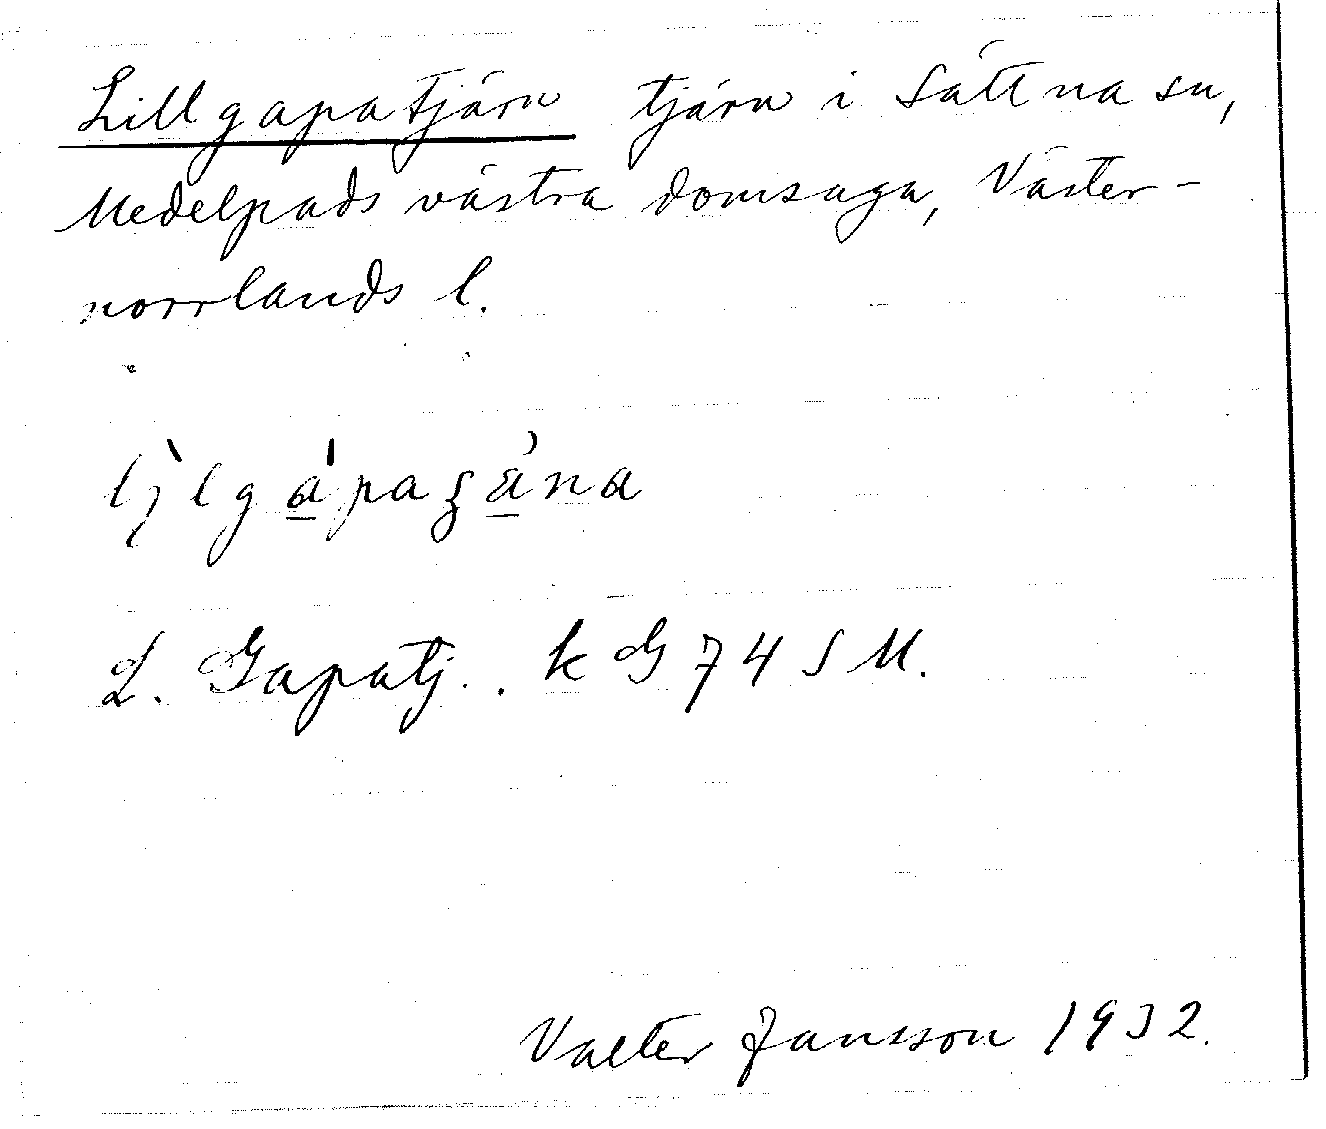 Lillgapatjärn tjärn i Sättna sn,
Medelpads västra domsaga, Väster-
norrlands l.
L. Gapatj.. k G 74 S M.
Valter Jansson 1932.